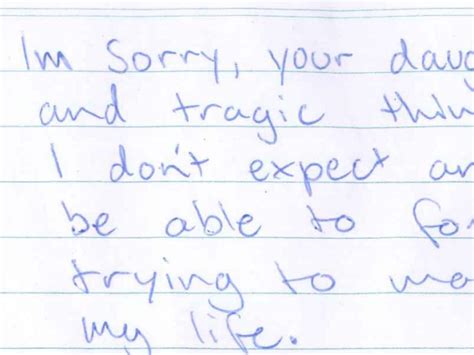 Im sorry, your daug
and tragic thin
I don't expect an
be able to fo
trying to ma
my life.